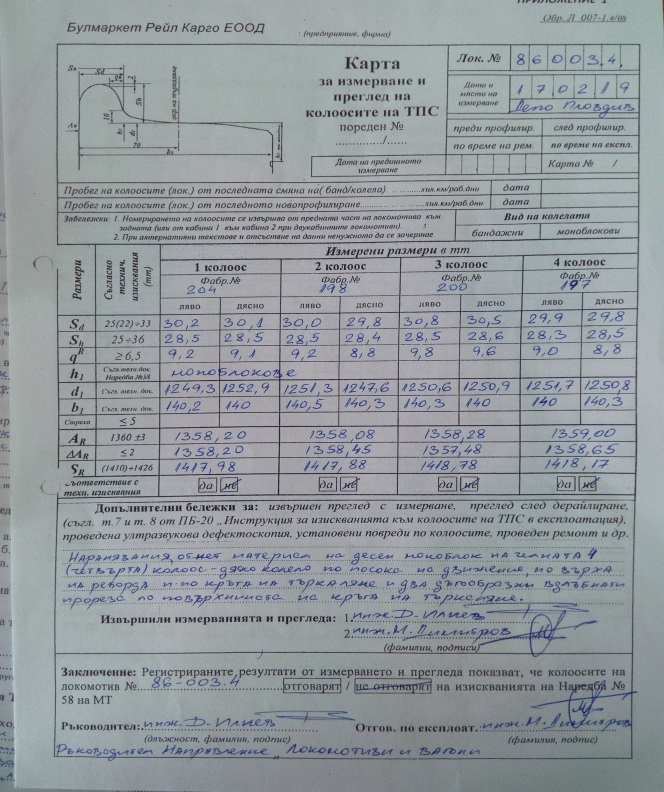 ПРИЛОЖЕНИЕ 1
Булмаркет Рейл Карго ЕООД
Обр. Л 007-1.4/08
(предприятие, фирма)
Карта
за измерване и
преглед на
колоосите на ТПС
пореден №
............/......
Лок. № 86003.4.
Дата и място на измерване 170219
Депо Пловдив
преди профилир. след профилир.
по време на рем. по време на експл.
Дата на предишното измерване Карта № /
Пробег на колоосите (лок.) от последната смяна на( банд/колела) хил.км/раб.дни дата
Пробег на колоосите (лок.) от последното новопрофилиране хил.км/раб.дни дата
Забележки: 1. Номерирането на колоосите се извършва от предната част на локомотива към
задната (или от кабина 1 към кабина 2 при двукабинните локомотиви).
2. При алтернативни текстове и отсъствие на данни ненужното да се зачертае.
Вид на колелата
бандажни моноблокови
Размери
Съгласно технич. изисквания (mm)
Измерени размери в mm
1 колоос 2 колоос 3 колоос 4 колоос
Фабр.№ 204 Фабр.№ 198 Фабр.№ 200 Фабр.№ 197
ляво дясно ляво дясно ляво дясно ляво дясно
Sd 25(22)÷33 30,2 30,1 30,0 29,8 30,8 30,5 29,9 29,8
Sh 25÷36 28,5 28,5 28,5 28,4 28,5 28,6 28,3 28,5
qR ≥ 6,5 9,2 9,1 9,2 8,8 9,8 9,6 9,0 8,8
h1 Съгл.техн.док. Наредба №58 моноблокове
d1 Съгл. техн. док. 1249,3 1252,9 1251,3 1247,6 1250,6 1250,9 1251,7 1250,8
b1 Съгл. техн. док. 140,2 140 140,5 140,3 140,3 140,3 140 140,3
≤ 5
AR 1360 ±3 1358,20 1358,08 1358,28 1359,00
ΔAR ≤ 2 1358,20 1358,45 1357,48 1358,65
SR (1410)÷1426 1417,98 1417,88 1418,78 1418,17
Съответствие с техн. изисквания да не да не да не да не
Допълнителни бележки за: извършен преглед с измерване, преглед след дерайлиране,
(съгл. т.7 и т. 8 от ПБ-20 „Инструкция за изискванията към колоосите на ТПС в експлоатация),
проведена ултразвукова дефектоскопия, установени повреди по колоосите, проведен ремонт и др.
Наранявания, отнет материал на десен моноблок на 4
(четвърта) колоос - дясно колело по посока на движение, по върха
на реборда и по кръга на търкаляне и два дъгообразни вдлъбнати
прореза по повърхнината на кръга на търкаляне.
Извършили измерванията и прегледа: 1. инж. Д. Илиев
2 инж. М. Димитров
(фамилии, подписи)
Заключение: Регистрираните резултати от измерването и прегледа показват, че колоосите на
локомотив № 86-003.4 отговарят / не отговарят на изискванията на Наредба №
58 на МТ
Ръководител: инж. Д. Илиев Отгов. по експлоат. инж. М. Димитров
(длъжност, фамилия, подпис) (фамилия, подпис)
Ръководител Направление „Локомотиви и вагони